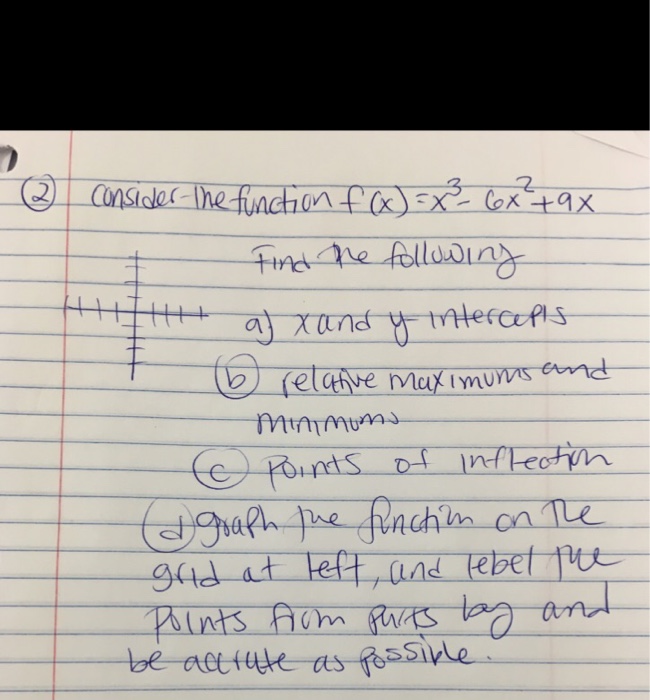 ② Consider the function f(x) = x³ - 6x² + 9x
Find the following
a) x and y intercepts
ⓑ relative maximums and
minimums
ⓒ points of inflection
ⓓ graph the function on the
grid at left, and lebel the
points from parts and
be accrute as possible.